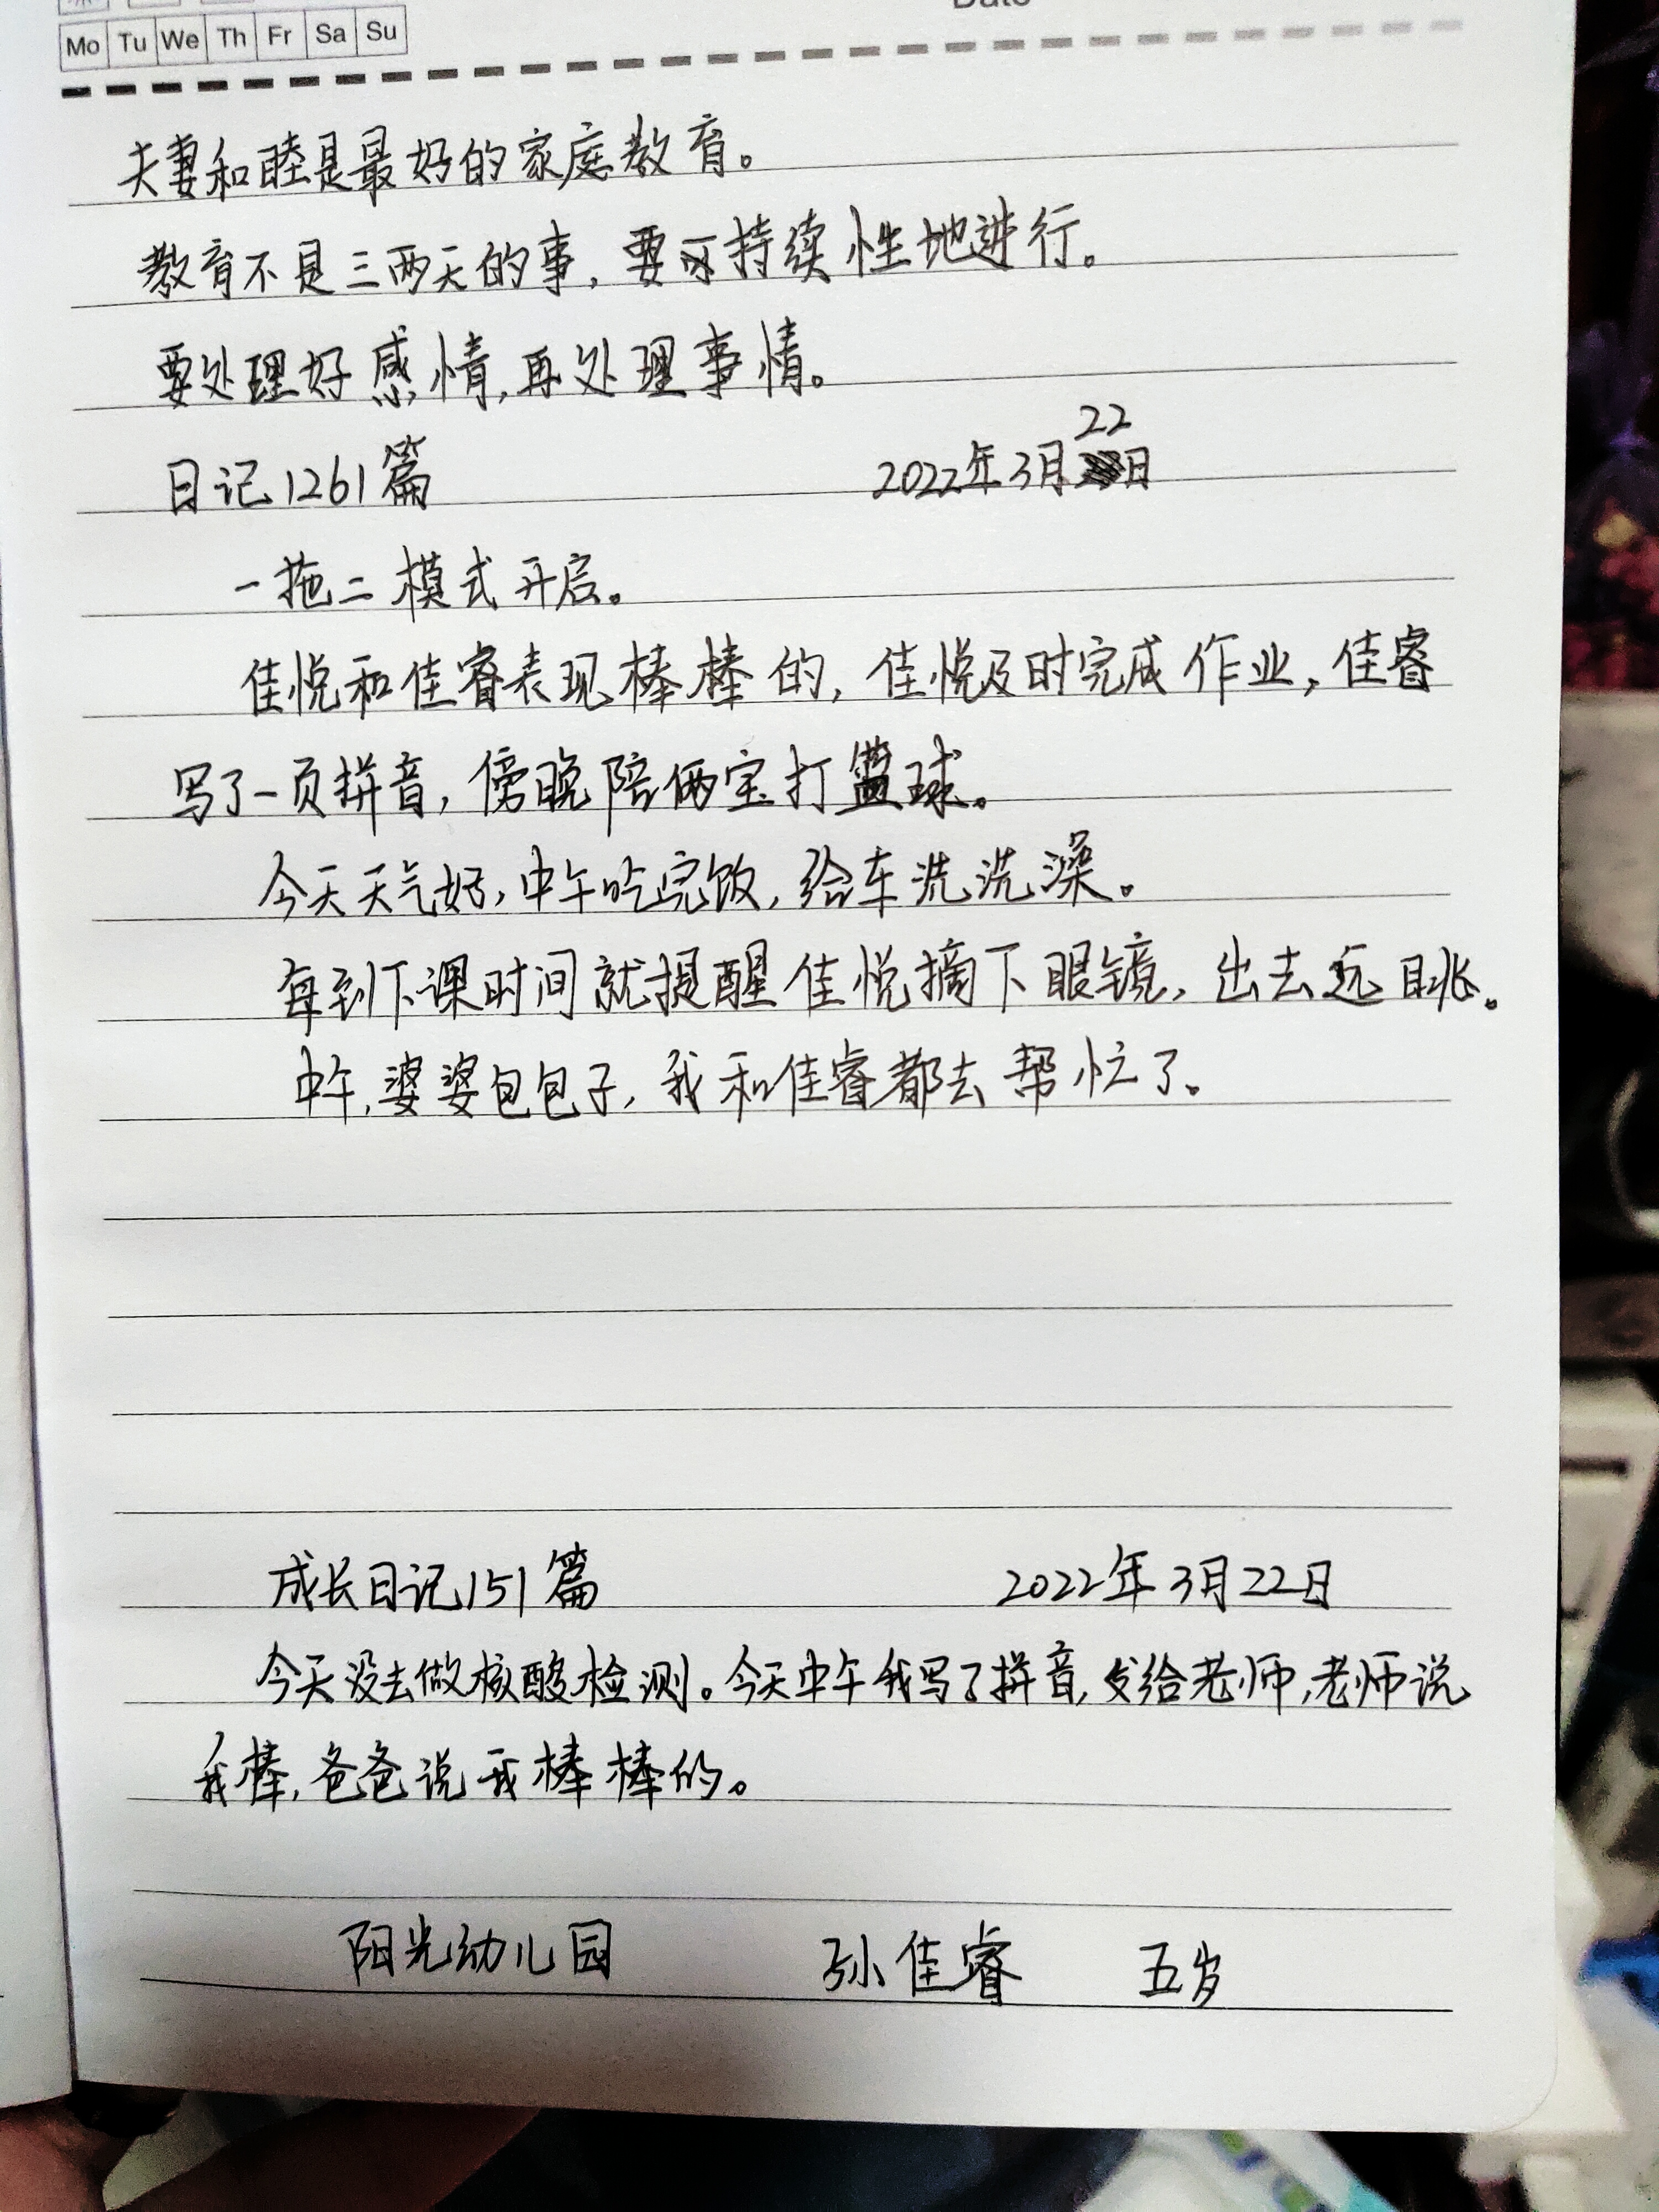 Date
Mo Tu We Th Fr Sa Su
夫妻和睦是最好的家庭教育。
教育不是三两天的事，要可持续性地进行。
要处理好感情，再处理事情。
22
日记1261篇 2022年3月日
一拖二模式开启。
佳悦和佳睿表现棒棒的，佳悦及时完成作业，佳睿
写了一页拼音，傍晚陪俩宝打篮球。
今天天气好，中午吃完饭，给车洗洗澡。
每到下课时间就提醒佳悦摘下眼镜，出去远眺。
中午，婆婆包包子，我和佳睿都去帮忙了。
成长日记151篇 2022年3月22日
今天没去做核酸检测。今天中午我写了拼音，发给老师，老师说
我棒，爸爸说我棒棒的。
阳光幼儿园 孙佳睿 五岁